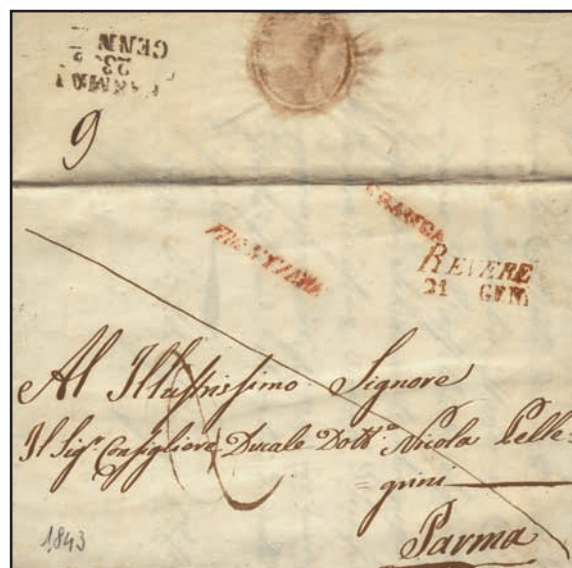 GENN
23
9
FRANCA
REVERE
21 GEN
Al Illustrissimo Signore
Il Sigr. Consigliere Ducale Dottr.e Nicola Pelle=
=grini
Parma
1843